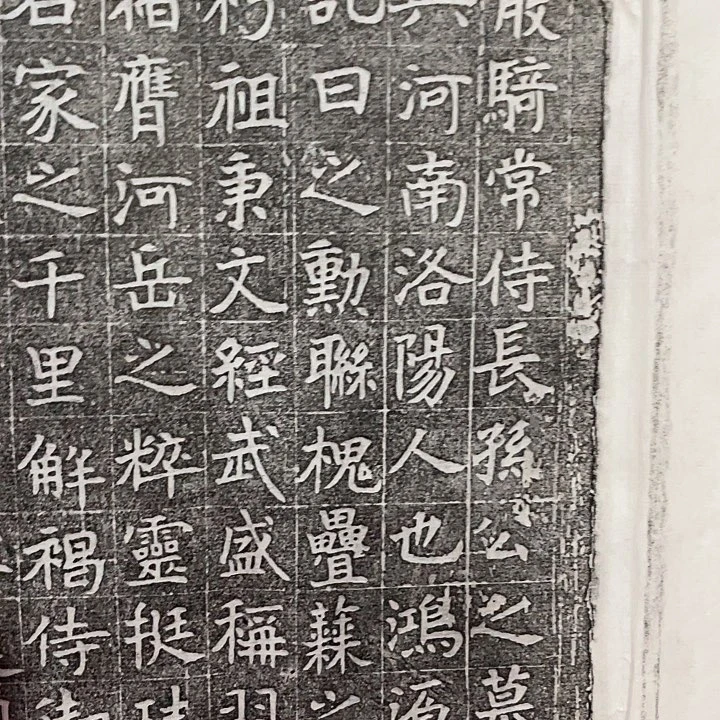 散騎常侍長孫公之墓
河南洛陽人也鴻源
曰之勳聯槐疊蘇之
祖秉文經武盛稱羽
膺河岳之粹靈挺
家之千里解褐侍御